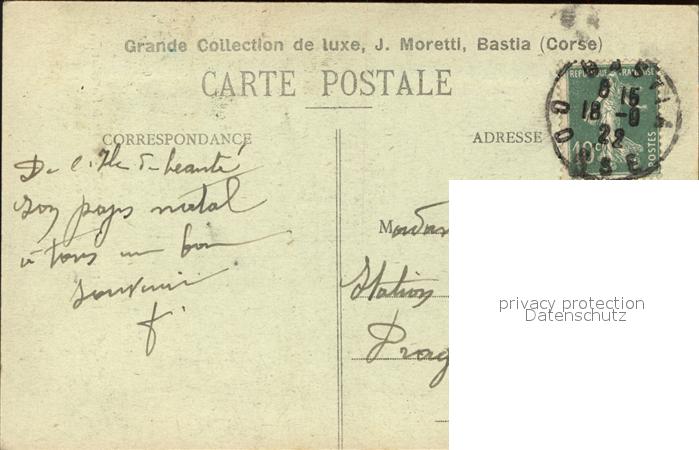 Grande Collection de luxe, J. Moretti, Bastia (Corse)
CARTE POSTALE
CORRESPONDANCE
De l'Ile de beauté
son pays natal
à tous un bon
souvenir
f.
ADRESSE
REPUBLIQUE FRANÇAISE
POSTES
10c
BASTIA
CORSE
8 15
18 - 
22
Madam
Station
Prag
privacy protection
Datenschutz